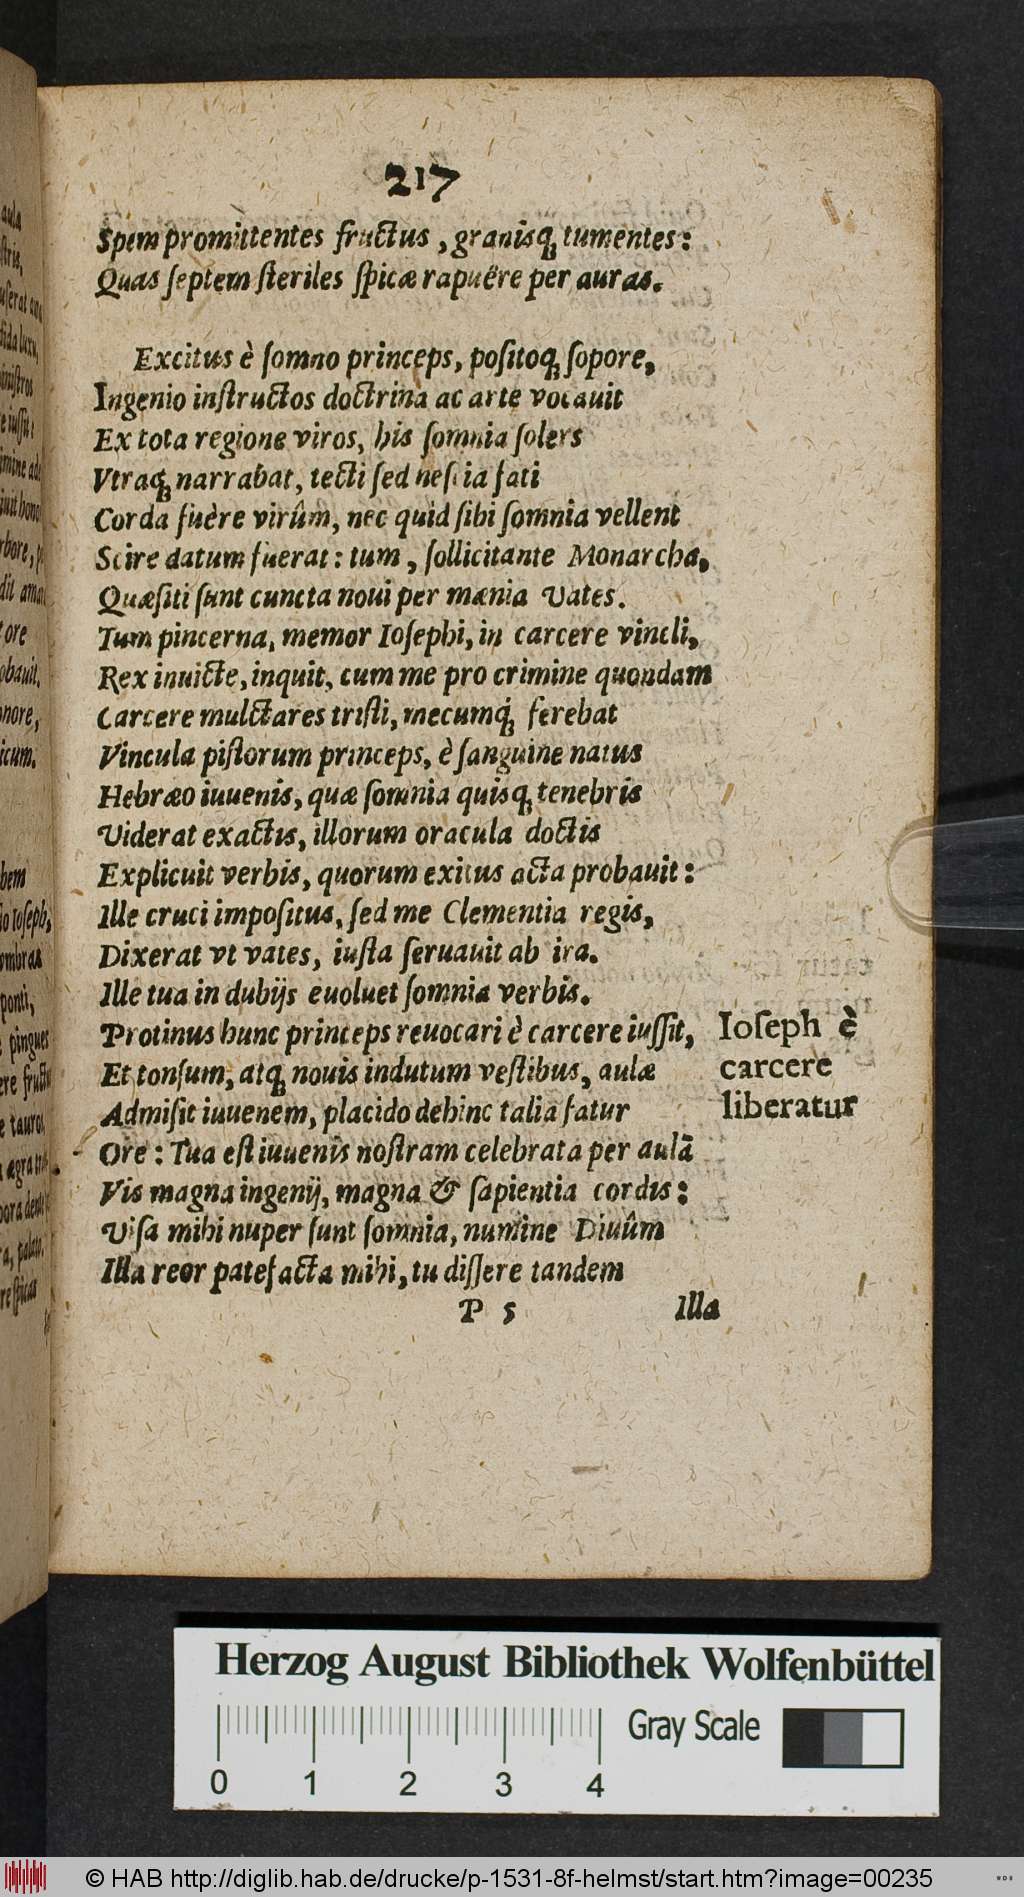 217
Spem promittentes fructus, granisq́; tumentes:
Quas ſeptem ſteriles ſpicæ rapuëre per auras.
Excitus è ſomno princeps, poſitoq́; ſopore,
Ingenio inſtructos doctrina ac arte vocauit
Ex tota regione viros, his ſomnia ſolers
Vtraq́; narrabat, tecti ſed neſcia fati
Corda fuère virûm, nec quid ſibi ſomnia vellent
Scire datum fuerat: tum, ſollicitante Monarcha,
Quæſiti ſunt cuncta noui per mænia Vates.
Tum pincerna, memor Ioſephi, in carcere vincli,
Rex inuicte, inquit, cum me pro crimine quondam
Carcere mulctares triſti, mecumq́; ferebat
Vincula piſtorum princeps, è ſanguine natus
Hebræo iuuenis, quæ ſomnia quisq́; tenebris
Viderat exactis, illorum oracula doctis
Explicuit verbis, quorum exitus acta probauit:
Ille cruci impoſitus, ſed me Clementia regis,
Dixerat vt vates, iuſta ſeruauit ab ira.
Ille tua in dubijs euoluet ſomnia verbis.
Protinus hunc princeps reuocari è carcere iuſſit,
Et tonſum, atq́; nouis indutum veſtibus, aulæ
Admiſit iuuenem, placido dehinc talia fatur
Ore: Tua eſt iuuenis noſtram celebrata per aulā
Vis magna ingenij, magna & ſapientia cordis:
Viſa mihi nuper ſunt ſomnia, numine Diuûm
Illa reor patefacta mihi, tu diſſere tandem
P 5 Illa
Ioſeph è
carcere
liberatur
Herzog August Bibliothek Wolfenbüttel
Gray Scale
0 1 2 3 4
© HAB http://diglib.hab.de/drucke/p-1531-8f-helmst/start.htm?image=00235